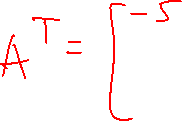 A^T = [-5